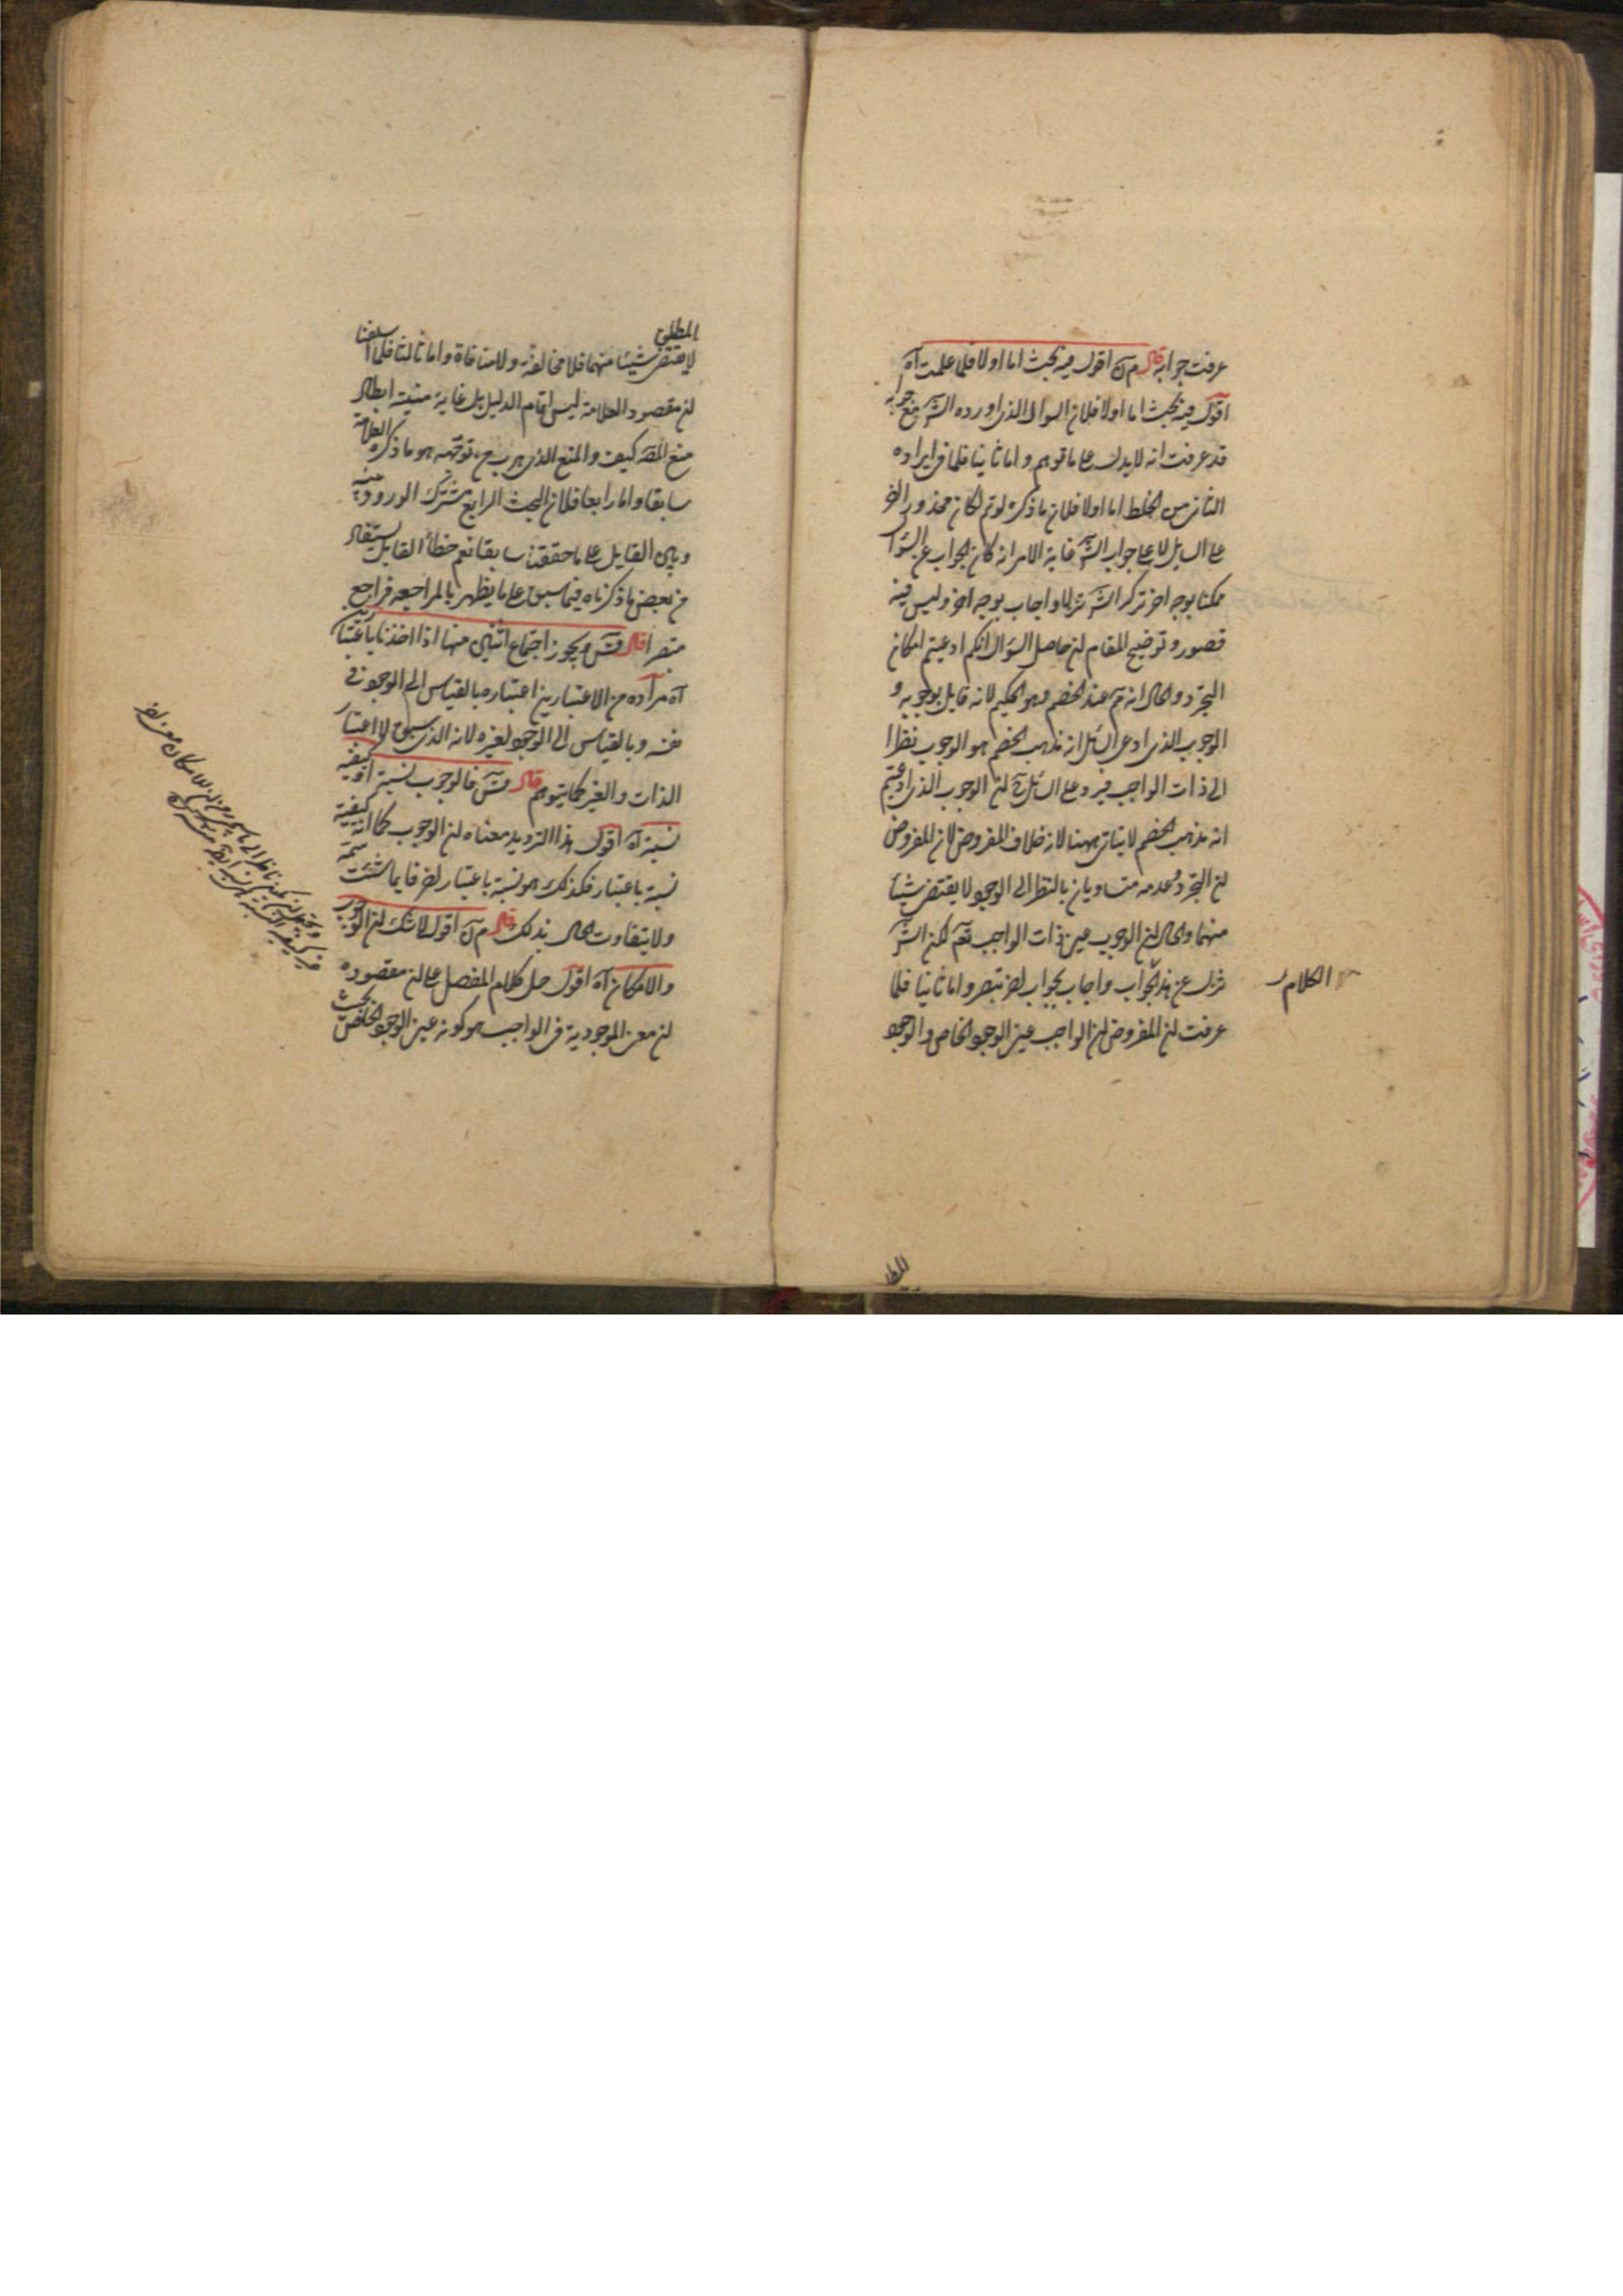 عرفت جوابه قال م ن اقول فيه بحث اما اولا فلما علمت آه
اقول فيه بحث اما اولا فلان السوال الذى اورده الش مع جوابه
قد عرفت انه لا يدل على ما توهم واما ثانيا فلما فى ايراده
الثانى من الخلط اما اولا فلان ما ذكره لو تم لكان محذورا
على السايل لا على جواب الش غاية الامر انه كان الجواب عن السؤال
ممكنا بوجه اخر تركه الش تنزلا واجاب بوجه اخر وليس فيه
قصور وتوضيح المقام ان حاصل السؤال انكم ادعيتم امكان
التجرد والحال انه تم عند الخصم وهو الحكيم لانه قايل بوجوبه و
الوجوب الذى ادعى السائل انه مذهب الخصم هو الوجوب نظرا
الى ذات الواجب فيرد على السائل ح ان الوجوب الذى ادعيتم
انه مذهب الخصم لا يتاتى ههنا لانه خلاف المفروض لان المفروض
ان التجرد وعدمه متساويان بالنظر الى الوجود لا يقتضى شيئا
منهما والحال ان الوجوب عين ذات الواجب نعم لكن الش
تنزل عن هذا الجواب واجاب بجواب اخر تبصر واما ثانيا فلما
عرفت ان المفروض ان الواجب عين الوجود الخاص والوجود
الكلام
المطلق
لا يقتضى شيئا منهما فلا مخالفة ولا منافاة واما ثالثا فلما اسلفنا
ان مقصود العلامة ليس اتمام الدليل بل غاية منيته ابطال
منع المص كيف والمنع الذى توجهه هو ما ذكره العلامة
سابقا واما رابعا فلان البحث الرابع مشترك الورود بينه
وبين القايل على ما حققنا سابقا نعم خطأ القايل يستفاد
من بعض ما ذكرناه فيما سبق على ما يظهر بالمراجعه فراجع
متبصرا قال ش ويجوز اجتماع اثنين منها اذا اخذنا باعتبارين
آه مراده من الاعتبارين اعتباره بالقياس الى الوجود فى
نفسه وبالقياس الى الوجود لغيره لانه الذى سبق لا اعتبار
الذات والغير كما يتوهم قال ش فالوجوب نسبة او كيفية
نسبة آه اقول هذا الترديد معناه ان الوجوب كما انه كيفية
نسبة باعتبار فكذلك هو نسبة باعتبار اخر فايما شئت سمه
ولا يتفاوت الحال بذلك قال م ن اقول لا شك ان الوجوب
والامكان آه اقول حل كلام المفصل على ان مقصوده
ان معنى الموجودية فى الواجب هو كونه عين الوجود الخاص بحيث